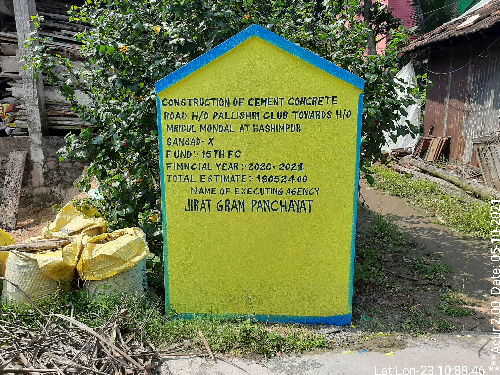 CONSTRUCTION OF CEMENT CONCRETE
ROAD H/O PALLISHRI CLUB TOWARDS H/O
MRIDUL MONDAL AT HASHIMPUR
SANSAD-X
FUND:- 15TH FC
FINANCIAL YEAR:- 2020-2021
TOTAL ESTIMATE:- 18052400
NAME OF EXECUTING AGENCY
JIRAT GRAM PANCHAYAT
Lat Lon-23 10.88.46